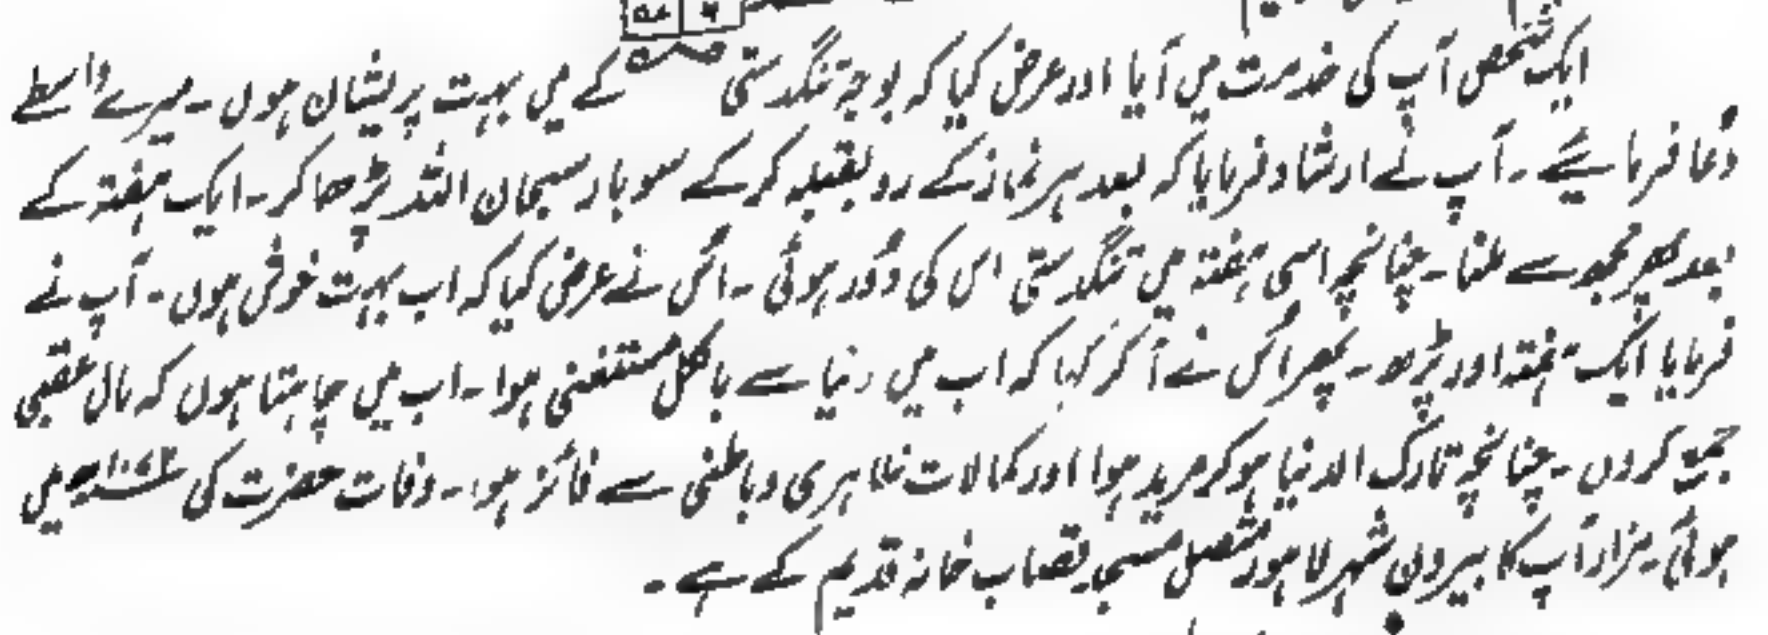 ایک شخص آپ کی خدمت میں آیا اور عرض کیا کہ بوجہ تنگدستی کے میں بہت پریشان ہوں۔ میرے واسطے
دُعا فرمائیے۔ آپ نے ارشاد فرمایا کہ بعد ہر نماز کے رو بقبلہ کر کے سو بار سبحان اللہ پڑھا کر۔ ایک ہفتہ کے
بعد پھر مجھ سے ملنا۔ چنانچہ اسی ہفتہ میں تنگدستی اس کی دُور ہوئی۔ اُس نے عرض کیا کہ اب بہت خوش ہوں۔ آپ نے
فرمایا ایک ہفتہ اور پڑھ۔ پھر اُس نے آکر کہا کہ اب میں دنیا سے بالکل مستغنی ہوا۔ اب میں چاہتا ہوں کہ مال عقبیٰ
جمع کروں۔ چنانچہ تارک الدنیا ہو کر مرید ہوا اور کمالات ظاہری و باطنی سے فائز ہوا۔ وفات حضرت کی میں
ہوئی۔ مزار آپ کا بیرون شہر لاہور متصل مسجد قصاب خانہ قدیم کے ہے۔